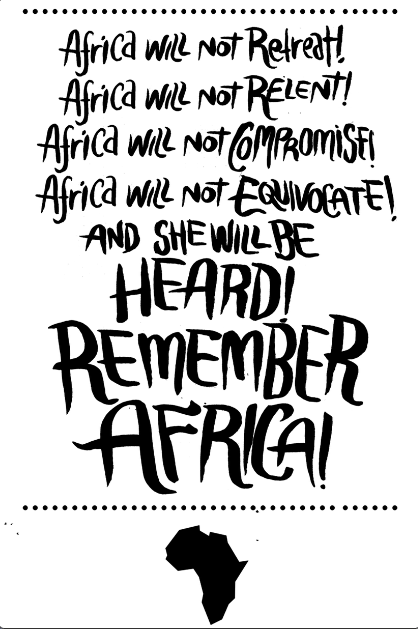 Africa will not Retreat!
Africa will not RELENT!
Africa will not COMPROMISE!
Africa will not EQUIVOCATE!
AND SHE WILL BE
HEARD!
REMEMBER
AFRICA!